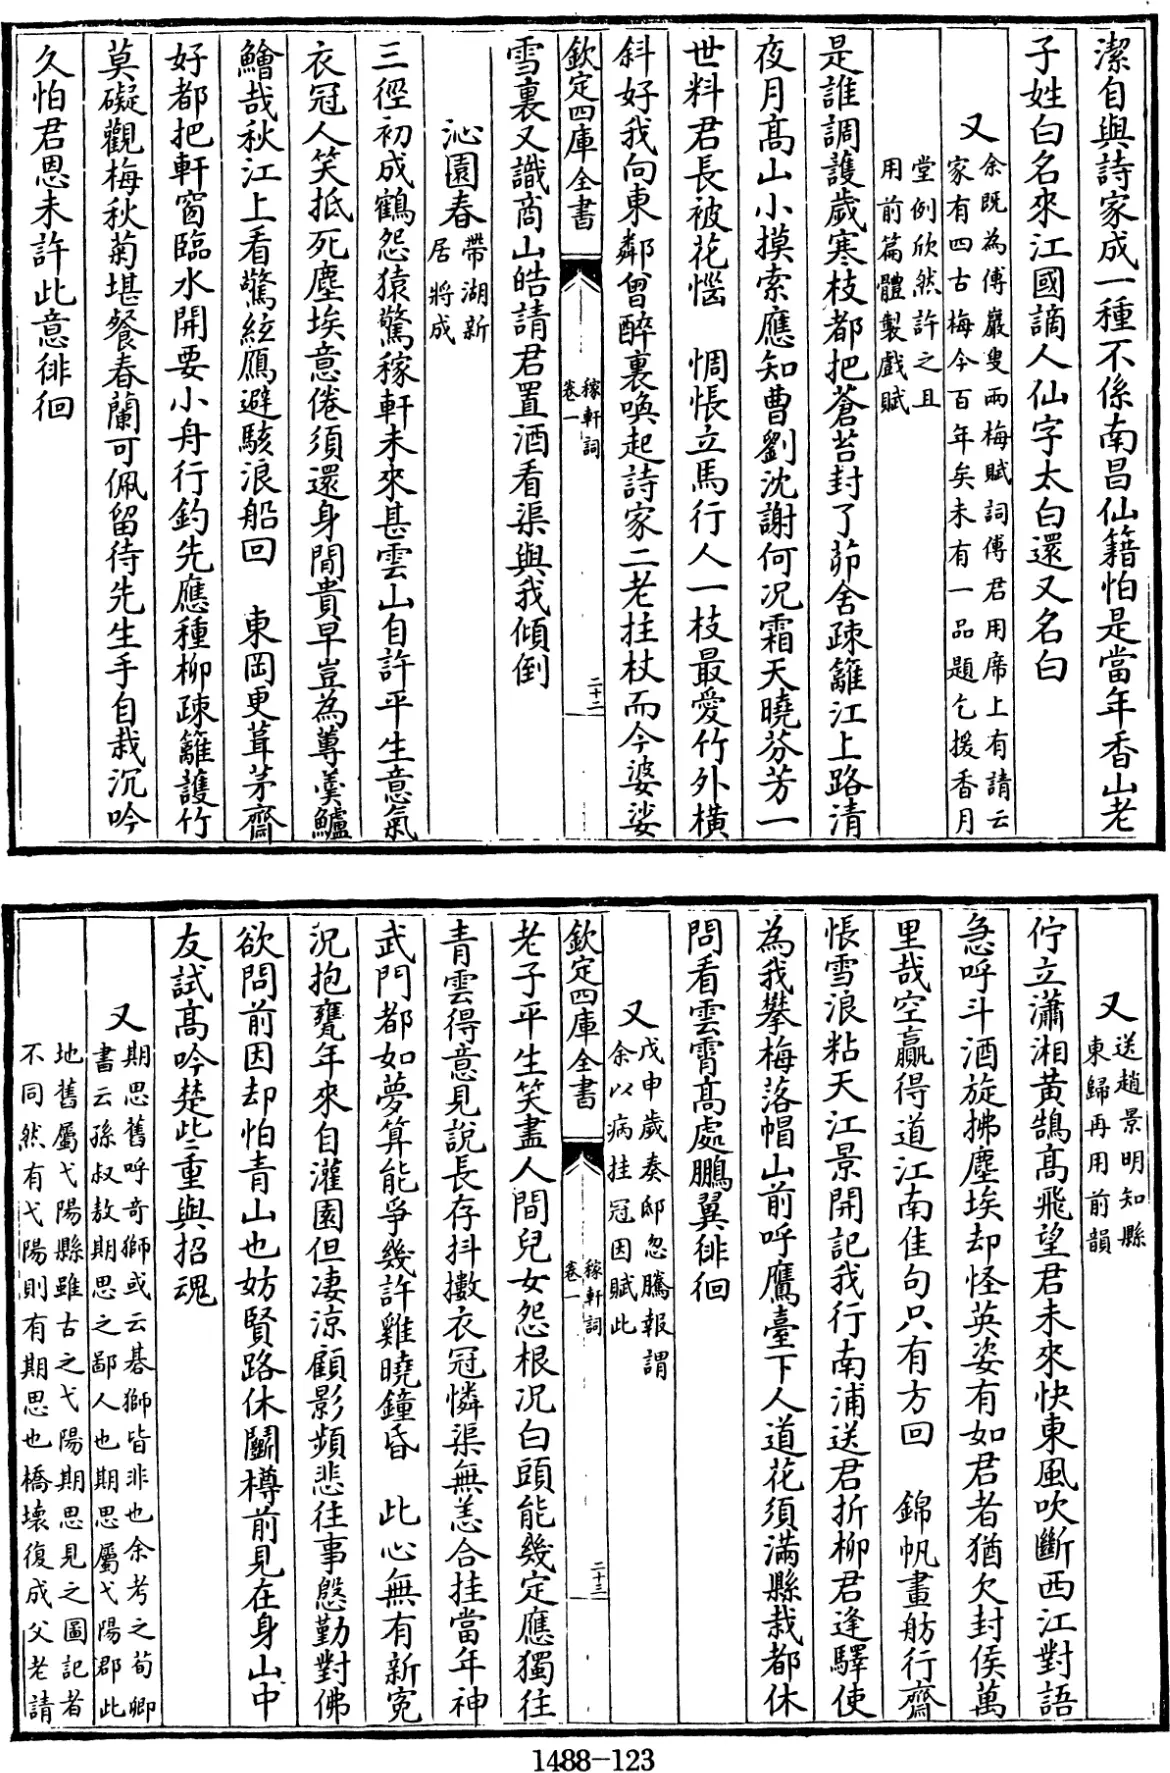 潔自與詩家成一種不係南昌仙籍怕是當年香山老
子姓白名來江國謫人仙字太白還又名白
又
余既為傅巖叟兩梅賦詞傅君用席上有請云
家有四古梅今百年矣未有一品題乞援香月
堂例欣然許之且
用前篇體製戲賦
是誰調護歲寒枝都把蒼苔封了茆舍疎籬江上路清
夜月髙山小摸索應知曹劉沈謝何況霜天曉芬芳一
世料君長被花惱 惆悵立馬行人一枝最愛竹外橫
斜好我向東鄰曾醉裏喚起詩家二老拄杖而今婆娑
欽定四庫全書
稼軒詞
卷一
二十二
雪裏又識商山皓請君置酒看渠與我傾倒
沁園春
帶湖新
居將成
三徑初成鶴怨猿驚稼軒未來甚雲山自許平生意氣
衣冠人笑抵死塵埃意倦須還身閒貴早豈為蓴羮鱸
鱠哉秋江上看驚絃鴈避駭浪船回 東岡更葺茅齋
好都把軒窗臨水開要小舟行釣先應種柳疎籬護竹
莫礙觀梅秋菊堪餐春蘭可佩留待先生手自栽沉吟
久怕君恩未許此意徘徊
又
送趙景明知縣
東歸再用前韻
佇立瀟湘黃鵠髙飛望君未來快東風吹斷西江對語
急呼斗酒旋拂塵埃却怪英姿有如君者猶欠封侯萬
里哉空贏得道江南佳句只有方回 錦帆畫舫行齋
悵雪浪粘天江景開記我行南浦送君折柳君逢驛使
為我攀梅落帽山前呼鷹臺下人道花須滿縣栽都休
問看雲霄髙處鵬翼徘徊
欽定四庫全書
稼軒詞
卷一
二十三
又
戊申歲奏邸忽騰報謂
余以病挂冠因賦此
老子平生笑盡人間兒女怨根況白頭能幾定應獨往
青雲得意見說長存抖擻衣冠憐渠無恙合挂當年神
武門都如夢算能爭幾許雞曉鐘昏 此心無有新寃
況抱甕年來自灌園但凄涼顧影頻悲往事慇勤對佛
欲問前因却怕青山也妨賢路休鬬樽前見在身山中
友試髙吟楚些重與招魂
又
期思舊呼奇獅或云碁獅皆非也余考之荀卿
書云孫叔敖期思之鄙人也期思屬弋陽郡此
地舊屬弋陽縣雖古之弋陽期思見之圖記者
不同然有弋陽則有期思也橋壞復成父老請
1488-123